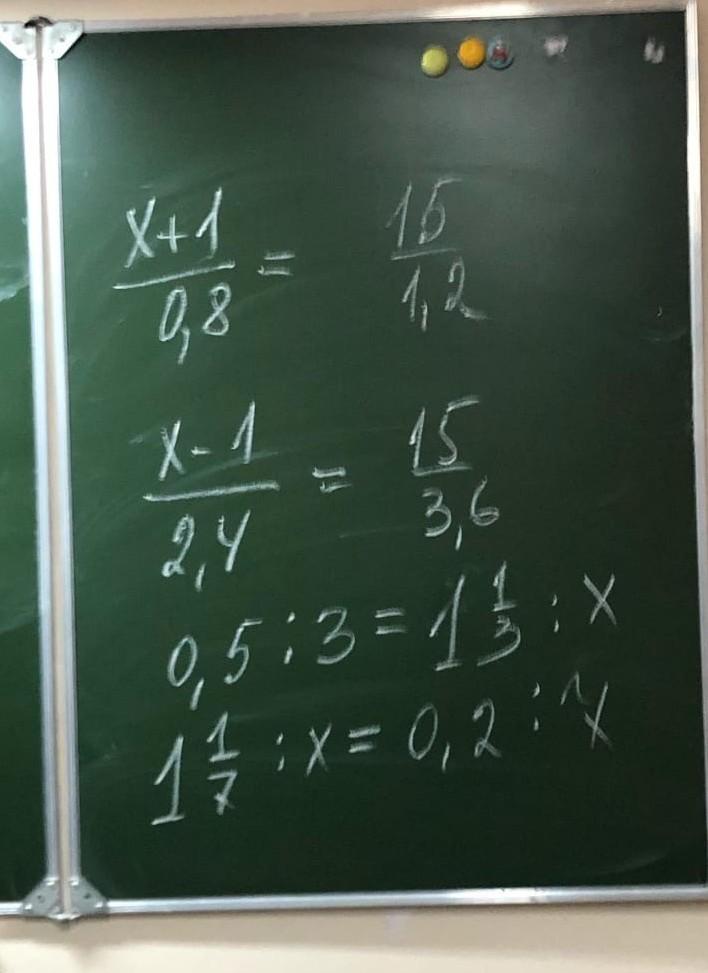 x+1/0,8 = 15/1,2
x-1/2,4 = 15/3,6
0,5 : 3 = 1 1/3 : x
1 1/7 : x = 0,2 :